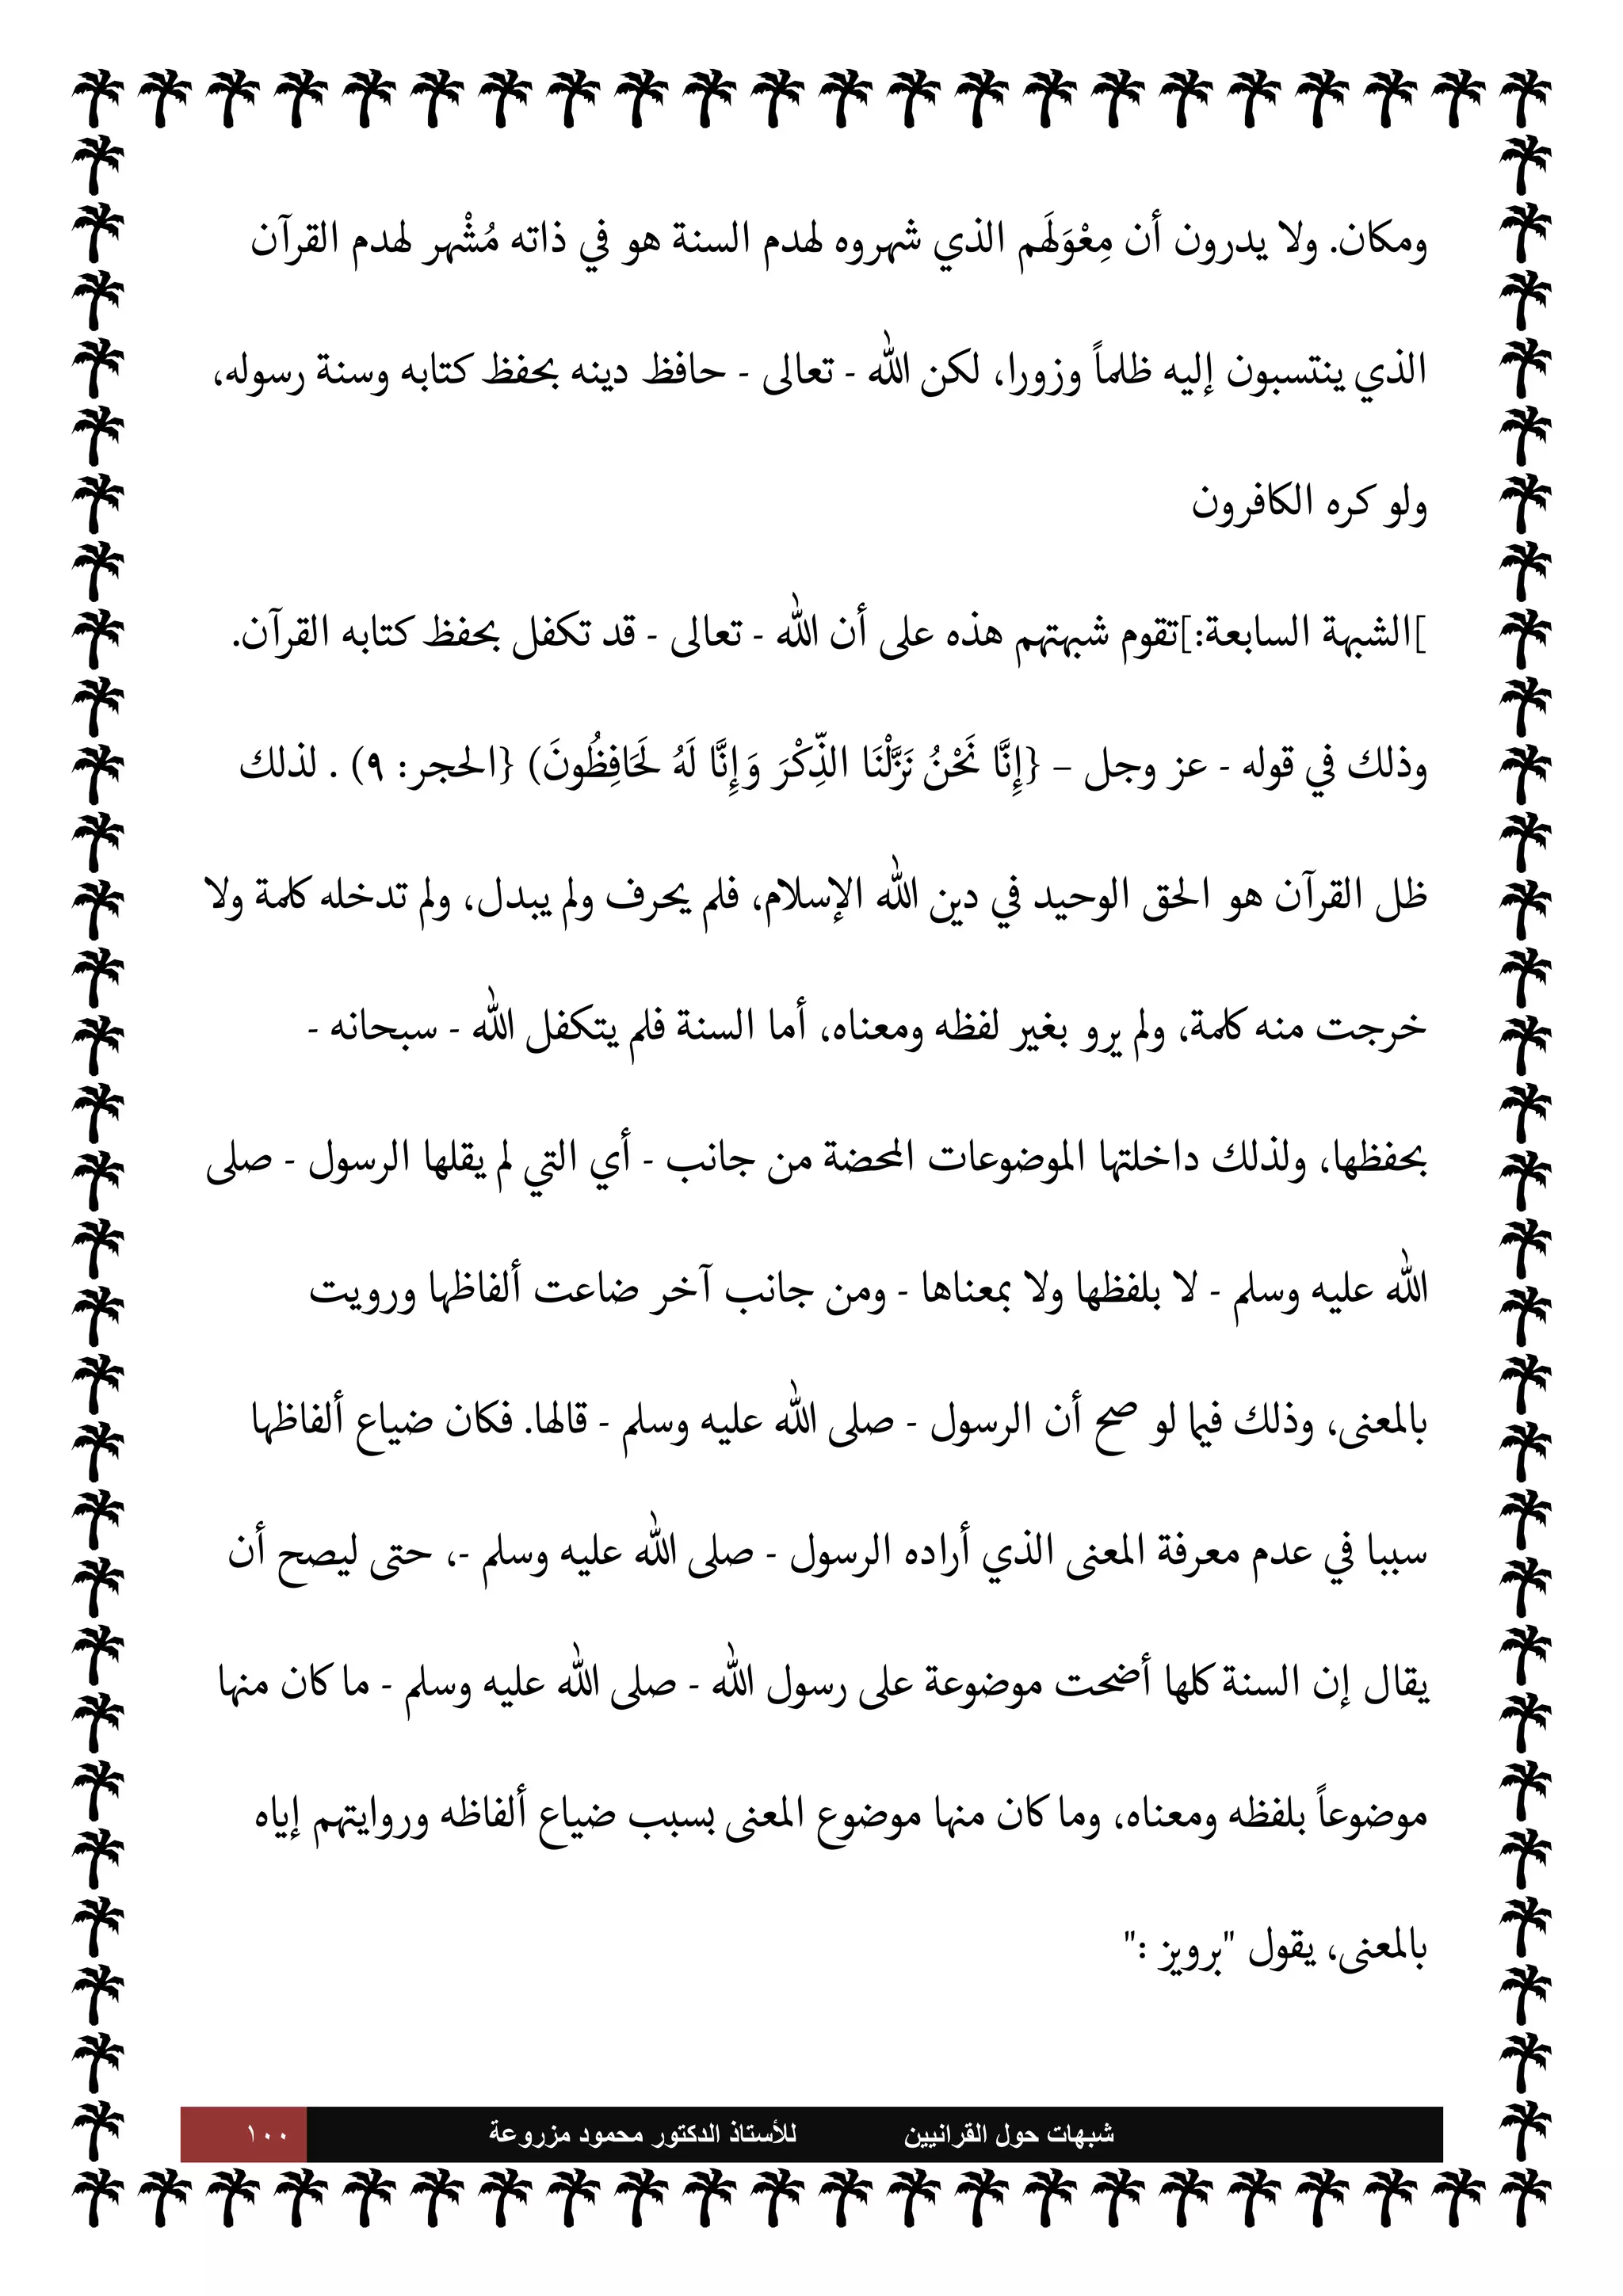 ومكان. ولا يدرون أن مِعْوَلَهَم الذي شهروه لهدم السنة هو في ذاته مُشْهر لهدم القرآن
الذي ينتسبون إليه ظلماً وزورا، لكن الله - تعالى - حافظ دينه بحفظ كتابه وسنة رسوله،
ولو كره الكافرون
]الشبهة السابعة:]تقوم شبهتهم هذه على أن الله - تعالى - قد تكفل بحفظ كتابه القرآن.
وذلك في قوله - عز وجل – {إِنَّا نَحْنُ نَزَّلْنَا الذِّكْرَ وَإِنَّا لَهُ لَحَافِظُونَ) {الحجر: ٩) . لذلك
ظل القرآن هو الحق الوحيد في دين الله الإسلام، فلم يحرف ولم يبدل، ولم تدخله كلمة ولا
خرجت منه كلمة، ولم يرو بغير لفظه ومعناه، أما السنة فلم يتكفل الله - سبحانه -
بحفظها، ولذلك داخلتها الموضوعات المحضة من جانب - أي التي لم يقلها الرسول - صلى
الله عليه وسلم - لا بلفظها ولا بمعناها - ومن جانب آخر ضاعت ألفاظها ورويت
بالمعنى، وذلك فيما لو صح أن الرسول - صلى الله عليه وسلم - قالها. فكان ضياع ألفاظها
سببا في عدم معرفة المعنى الذي أراده الرسول - صلى الله عليه وسلم -، حتى ليصح أن
يقال إن السنة كلها أضحت موضوعة على رسول الله - صلى الله عليه وسلم - ما كان منها
موضوعاً بلفظه ومعناه، وما كان منها موضوع المعنى بسبب ضياع ألفاظه وروايتهم إياه
بالمعنى، يقول "برويز :"
شبهات حول القرانيين للأستاذ الدكتور محمود مزروعة ١٠٠